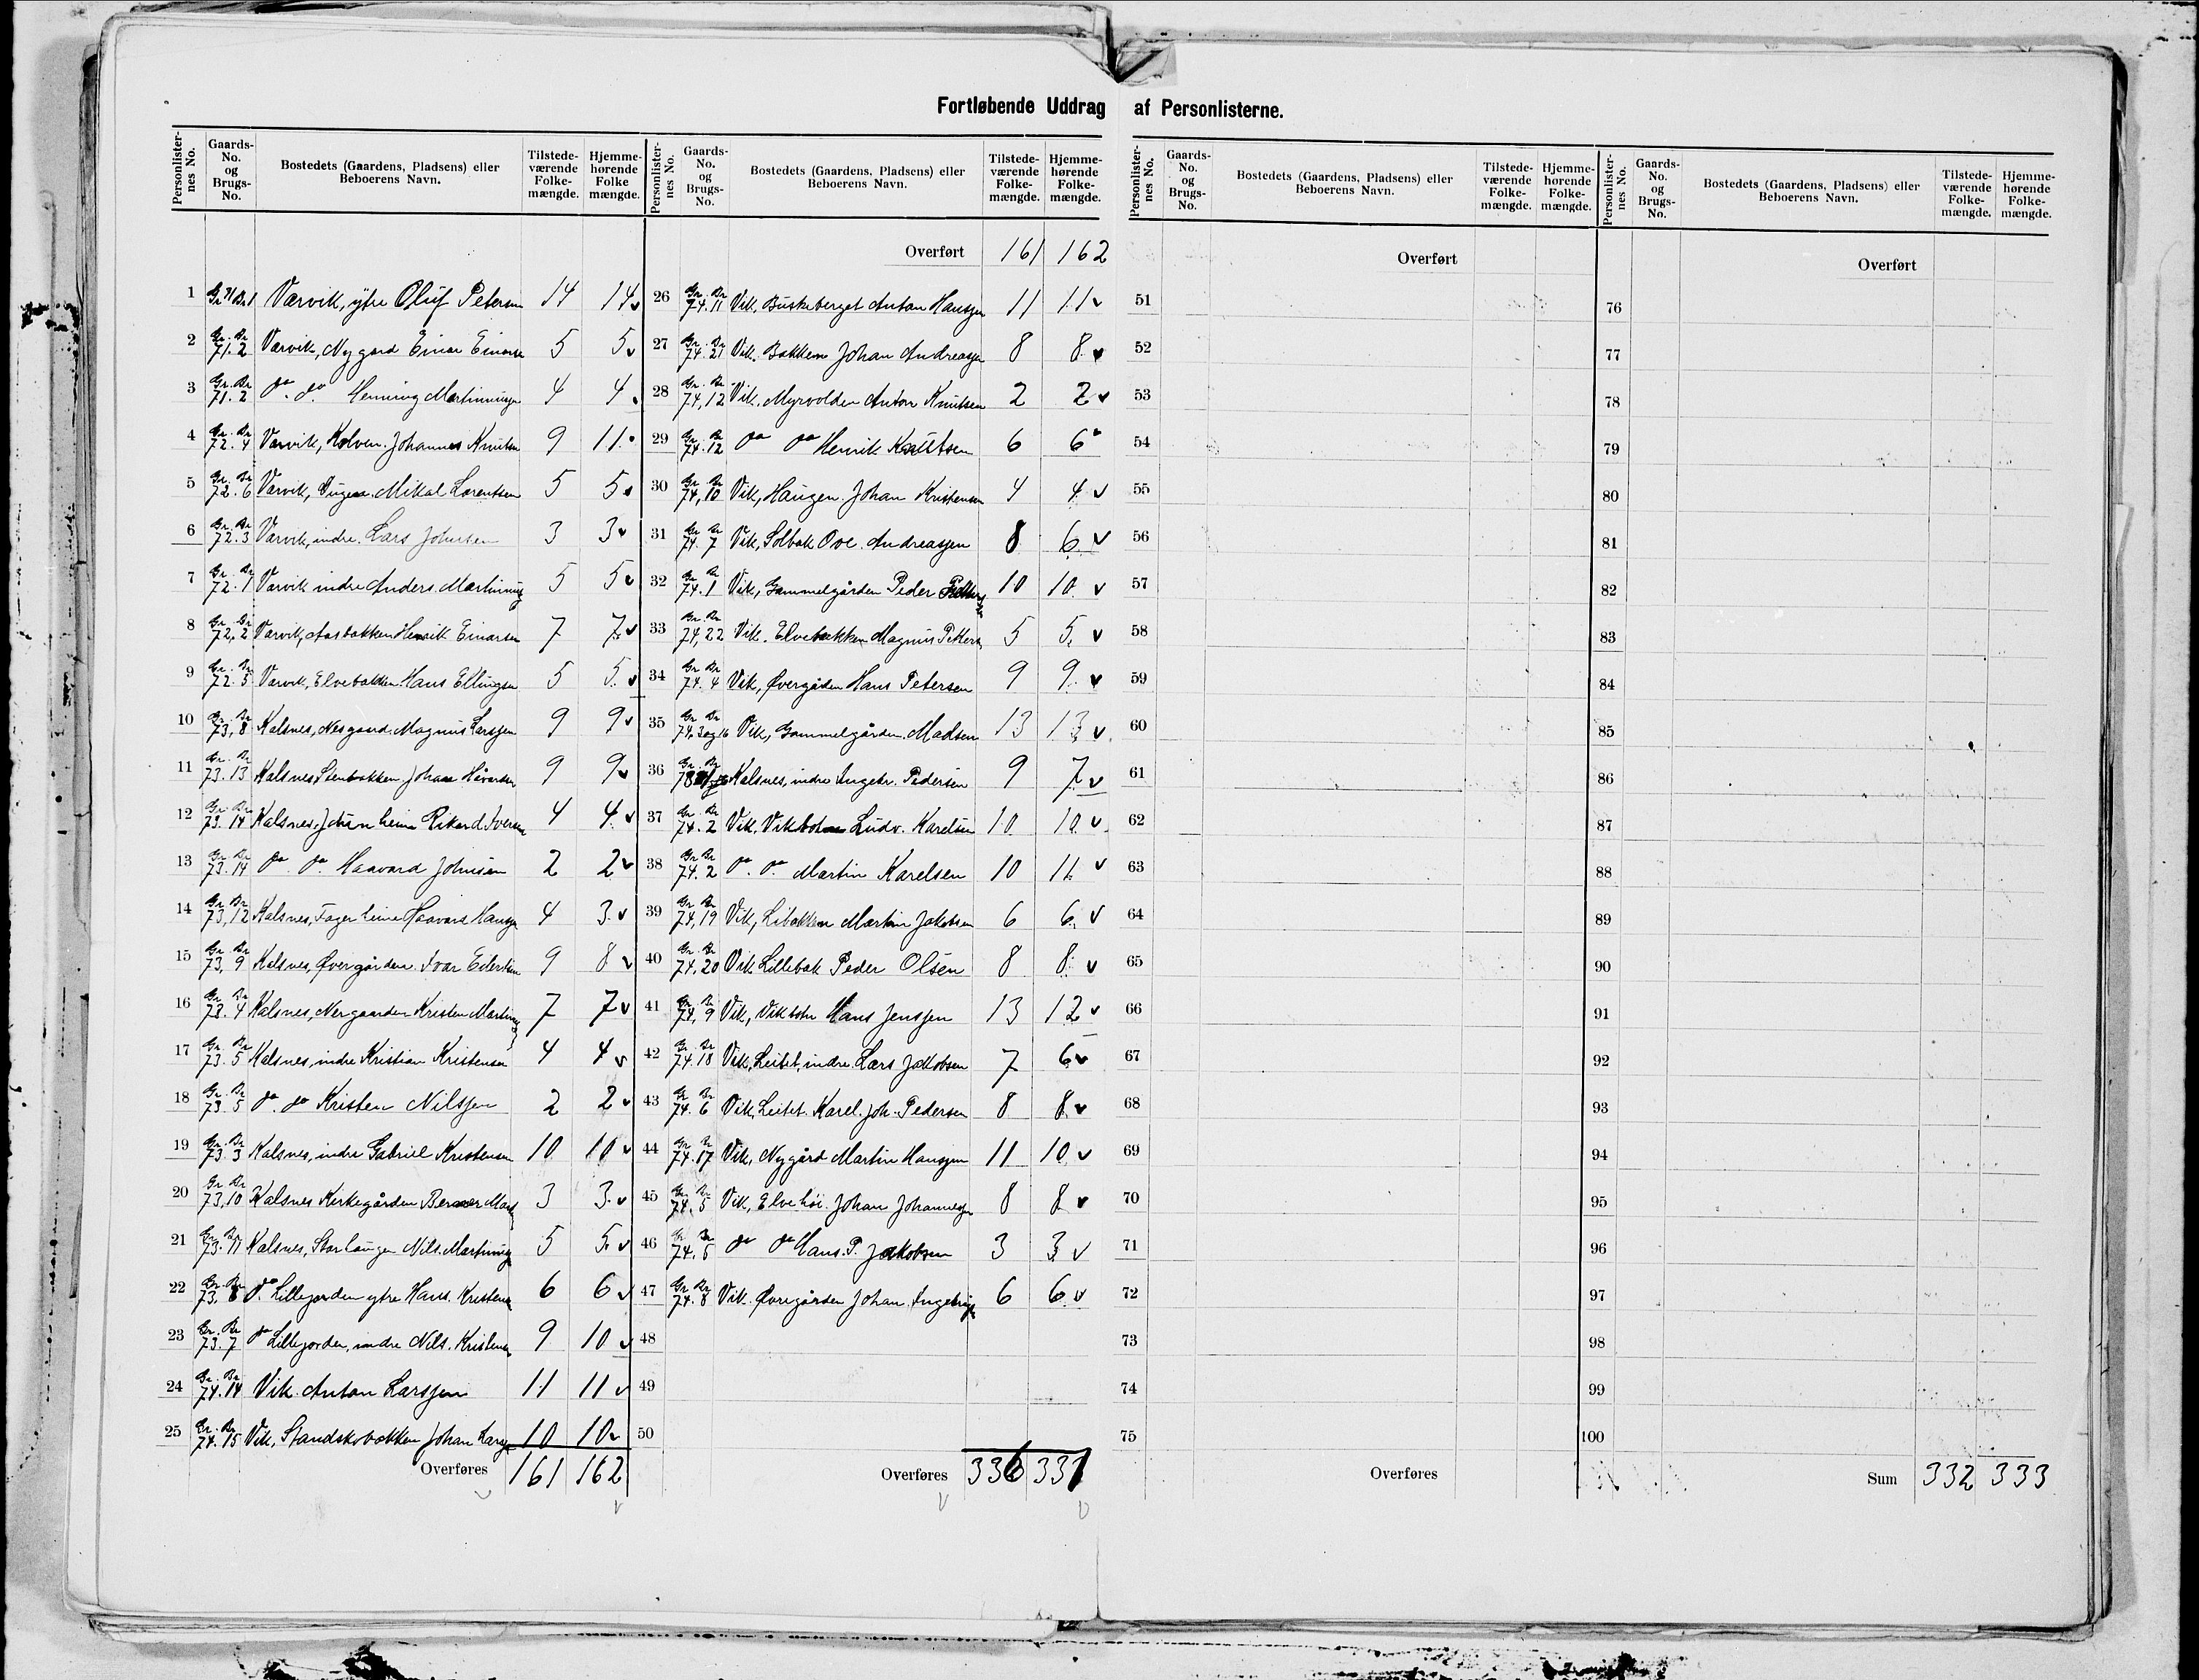 Fortløbende Uddrag af Personlisterne.
Personlister-nes No. Gaards-No. og Brugs-No. Bostedets (Gaardens, Pladsens) eller Beboerens Navn. Tilstede-værende Folke-mængde. Hjemme-hørende Folke mængde.
1 Gr 71 Br 1 Varvik, ytre Oluf Petersen 14 14
2 Gr. Br 71. 2 Varvik, Nygard Einar Einarse 5 5
3 Gr. Br 71. 2 do. do. Henning Martinussen 4 4
4 Gr. Br 72. 4 Varvik, Kolven. Johannes Knutsen 9 11
5 Gr. Br 72. 6 Varvik, Mikal Lorentsen 5 5
6 Gr. Br 72. 3 Varvik, indre. Lars Johnsen 3 3
7 Gr. Br 72. 1 Varvik indre Anders Martinussen 5 5
8 Gr. Br 72, 2 Varvik, Aasbakken Henrik Einarsen 7 7
9 Gr. Br 72. 5 Varvik, Elvebakken. Hans Ellingsen 5 5
10 Gr. Br 73, 8 Kalsnes, Nesgaard. Magnus Larssen 9 9
11 Gr. Br 73. 13 Kalsnes, Stenbakken. Johan Håvardsen 9 9
12 Gr. Br 73. 14 Kalsnes, Rikard Iversen 4 4
13 Gr. Br 73. 14 do. do. Haavard Johnsen 2 2
14 Gr. Br 73, 12 Kalsnes, Fagerheim Haavard Hanssen 4 3
15 Gr. Br 73, 9 Kalsnes, Øvergården. Ivar Edvardsen 9 8
16 Gr. Br 73. 4 Kalsnes, Nergaarden Kristen Martinussen 7 7
17 Gr. Br 73. 5 Kalsnes, indre Kristian Kristensen 4 4
18 Gr. Br 73. 5 do. do Kristen Nilssen 2 2
19 Gr. Br 73. 3 Kalsnes, indre Gabriel Kristensen 10 10
20 Gr Br 73, 10 Kalsnes Kirkegården Mart 3 3
21 Gr. Br 73. 11 Kalsnes, Storhaugen Nils. Martinussen 5 5
22 Gr. Br 73. 6 do. Lillejorden ytre Hans. Kristensen 6 6
23 Gr. Br 73. 7 do Lillejorden, indre Nils. Kristensen 9 10
24 Gr. Br 74. 14 Vik. Anton Larssen 11 11
25 Gr. Br 74. 15 Vik, Johan Larssen 10 10
Overføres 161 162
Personlister-nes No. Gaards-No. og Brugs-No. Bostedets (Gaardens, Pladsens) eller Beboerens Navn. Tilstede-værende Folke-mængde. Hjemme-hørende Folke-mængde.
Overført 161 162
26 Gr. Br 74. 11 Vik, Buskeberget Anton Hanssen 11 11
27 Gr. Br 74. 21 Vik. Bakken Johan Andreassen 8 8
28 Gr. Br 74, 12 Vik. Myrvolden Anton Knutsen 2 2
29 Gr. Br 74. 12 do do Henrik Knutsen 6 6
30 Gr. Br 74, 10 Vik, Haugen. Johan Kristensen 4 4
31 Gr Br 74. 7 Vik, Solbak Ove. Andreassen 8 6
32 Gr Br 74. 1 Vik, Gammelgården Peder 10 10
33 Gr. Br 74, 22 Vik. Elvebakken Magnus Petters 5 5
34 Gr. Br 74. 4 Vik, Øvergården Hans Petersen 9 9
35 Gr Br 74. 3 og 16 Vik, Gammelgården. Madsen 13 13
36 Gr. Br Kalsnes, indre Ingebr. Pedersen 9 7
37 Gr. Br 74. 2 Vik, Vikbotn Ludv. Karelsen 10 10
38 Gr. Br 74. 2 do. do. Martin Karelsen 10 11
39 Gr. Br 74, 19 Vik, Libakken Martin Jakobsen 6 6
40 Gr. Br 74, 20 Vik Lillebak Peder Olsen 8 8
41 Gr. Br 74, 9 Vik, Vikbotn Hans Jenssen 13 12
42 Gr. Br 74. 18 Vik, Leitet, indre. Lars Jakobsen 7 6
43 Gr. Br 74. 6 Vik, Leitet. Karel. Joh. Pedersen 8 8
44 Gr. Br 74. 17 Vik, Nygård Martin Hanssen 11 10
45 Gr. Br 74, 5 Vik, Elvehöi. Johan Johannessen 8 8
46 Gr. Br 74, 5 do do Hans. P. Jakobsen 3 3
47 Gr Br 74. 8 Vik. Øvregården Johan. Ingebrigt 6 6
48
49
50
Overføres 336 331
Personlister-nes No. Gaards-No. og Brugs-No. Bostedets (Gaardens, Pladsens) eller Beboerens Navn. Tilstede-værende Folke-mængde. Hjemme-hørende Folke-mængde.
Overført
51
52
53
54
55
56
57
58
59
60
61
62
63
64
65
66
67
68
69
70
71
72
73
74
75
Overføres
Personlister-nes No. Gaards-No. og Brugs-No. Bostedets (Gaardens, Pladsens) eller Beboerens Navn. Tilstede-værende Folke-mængde. Hjemme-hørende Folke-mængde.
Overført
76
77
78
79
80
81
82
83
84
85
86
87
88
89
90
91
92
93
94
95
96
97
98
99
100
Sum 332 333